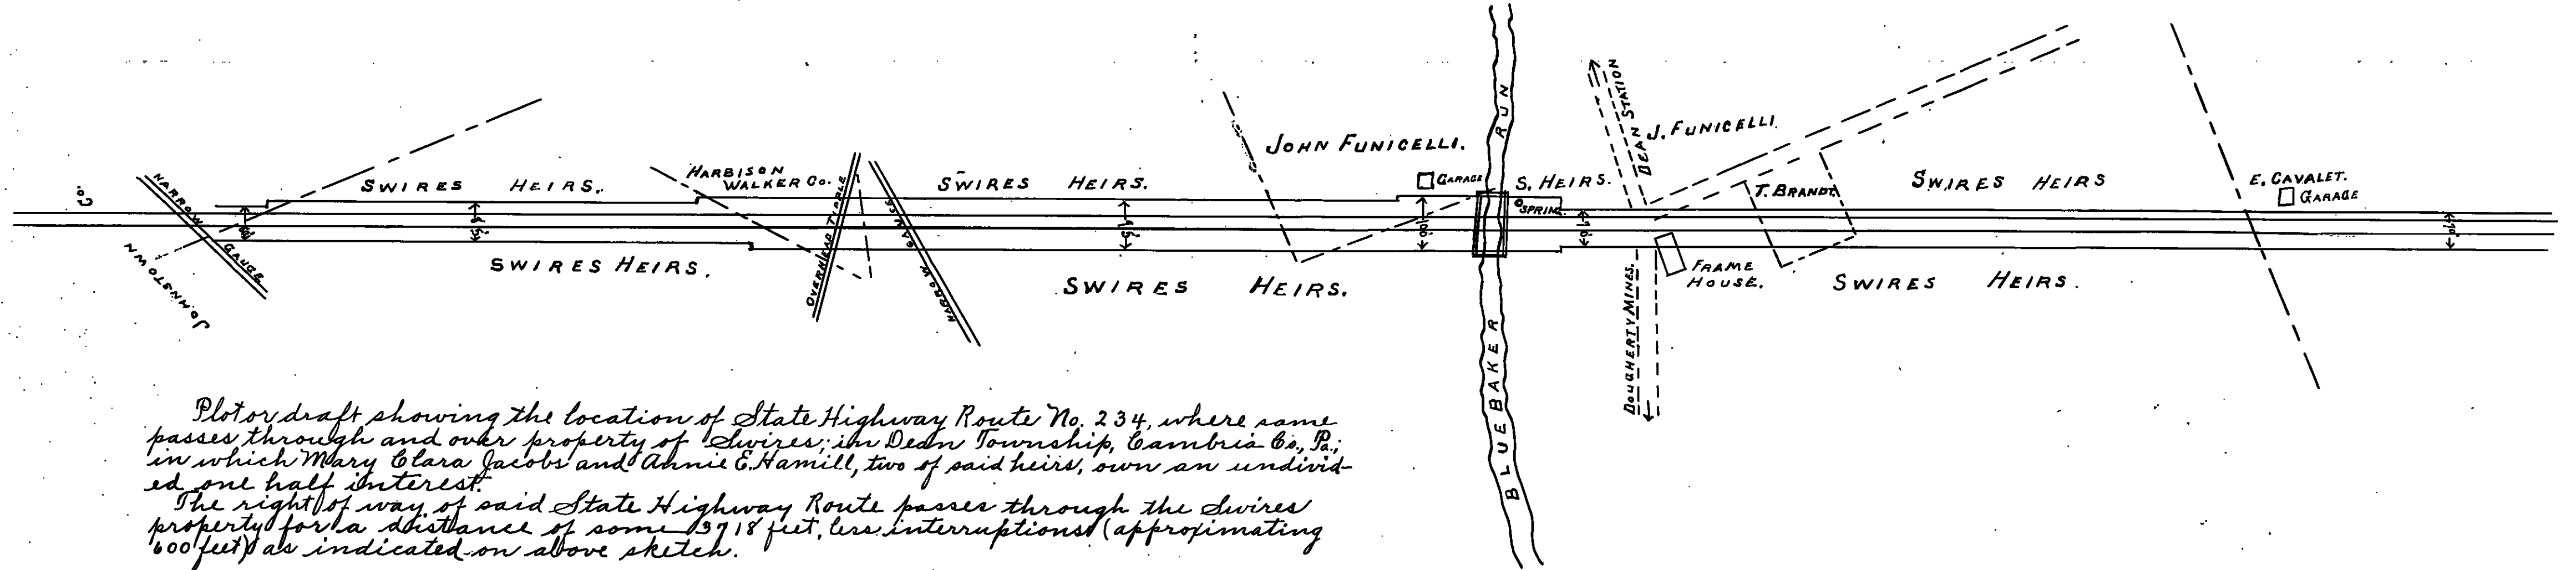 Co.
NARROW GAUGE
JOHNSTOWN
SWIRES HEIRS.
SWIRES HEIRS.
HARBISON
WALKER CO.
OVERHEAD TIPPLE
NARROW GAUGE
SWIRES HEIRS.
SWIRES HEIRS.
JOHN FUNICELLI.
GARAGE
BLUEBAKER RUN
S. HEIRS.
SPRING.
DEAN STATION
J. FUNICELLI.
DOUGHERTY MINES.
FRAME
HOUSE.
T. BRANDT.
SWIRES HEIRS
SWIRES HEIRS.
E. CAVALET.
GARAGE
100'
Plot or draft showing the location of State Highway Route No. 234, where same
passes through and over property of Swires; in Dean Township, Cambria Co., Pa.;
in which Mary Clara Jacobs and Annie E. Hamill, two of said heirs, own an undivid-
ed one half interest.
The right of way of said State Highway Route passes through the Swires
property for a distance of some 3718 feet, less interruptions (approximating
600 feet) as indicated on above sketch.